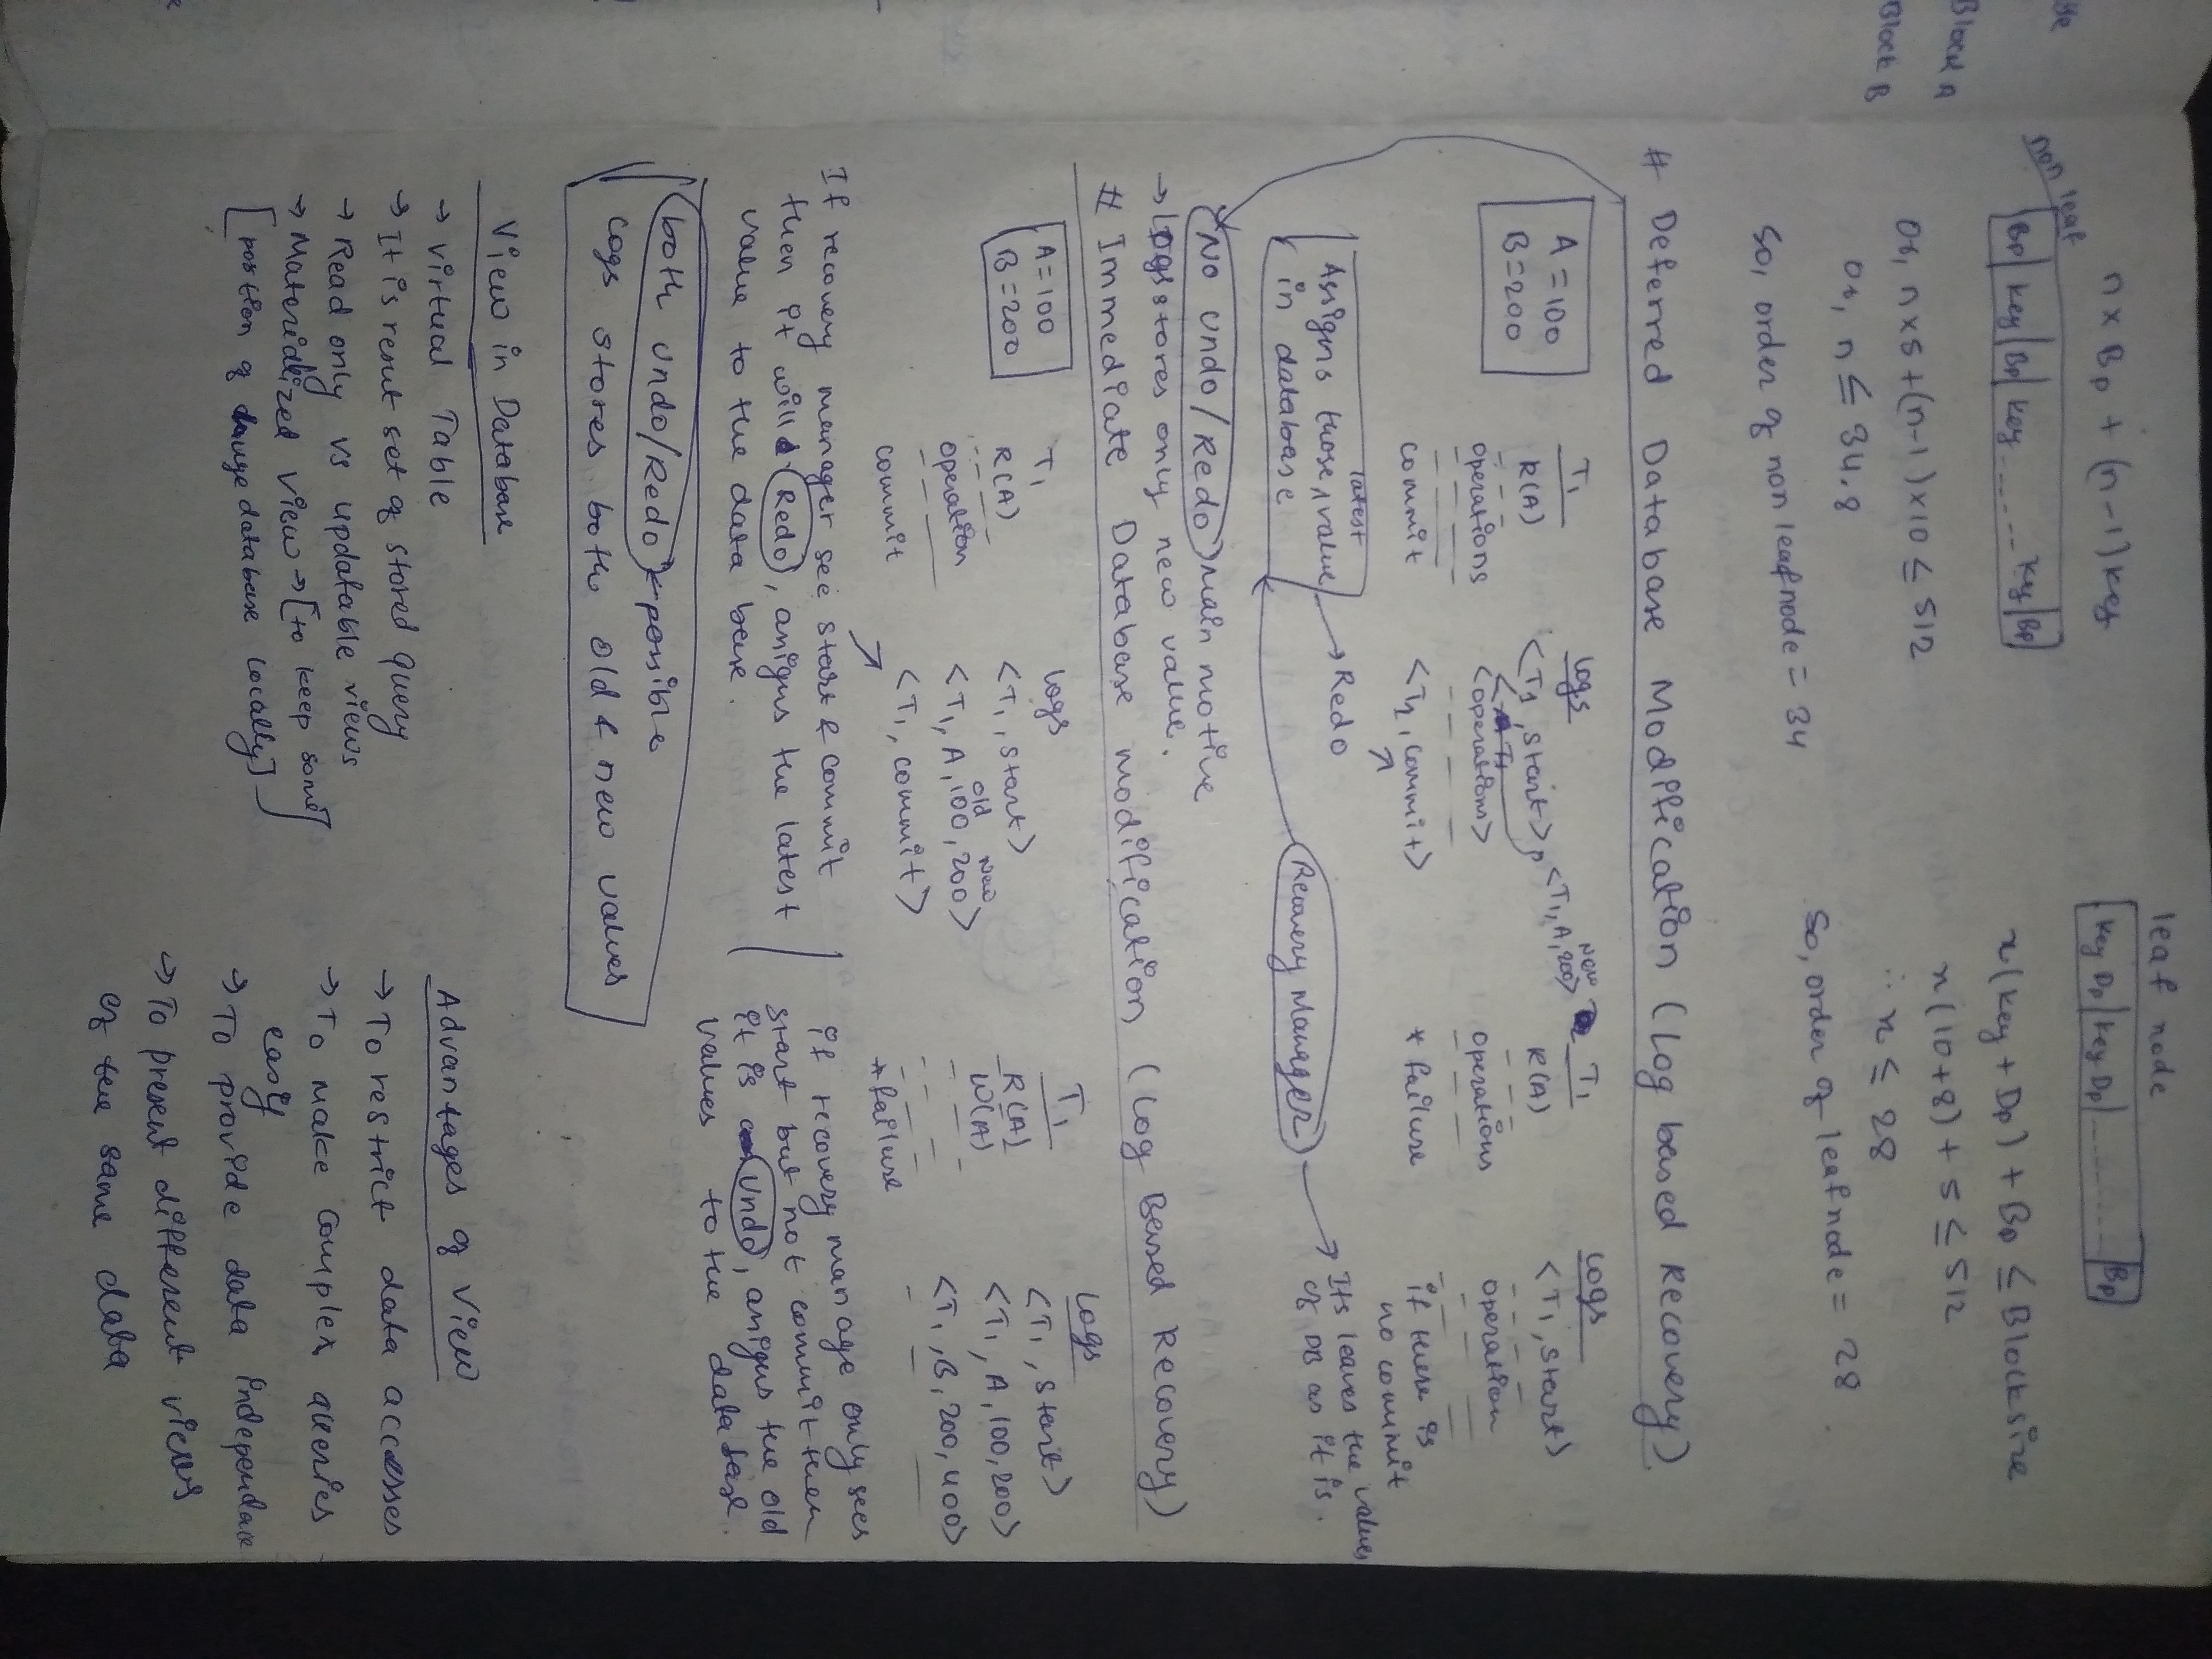 ye
Block A
Block B
n x Bp + (n-1) key
non leaf
Bp | key | Bp | key ........ key | Bp
Or, n x 5 + (n-1) x 10 ≤ 512
Or, n ≤ 34.8
So, order of non leaf node = 34
leaf node
key Dp | key Dp | ........ | Bp
x(key + Dp) + Bp ≤ Block size
x(10+8) + 5 ≤ 512
∴ x ≤ 28
So, order of leaf node = 28.
# Deferred Database Modification (log based Recovery).
A = 100
B = 200
T1
R(A)
operations
commit
logs
<T1, start>
<operations>
<T1, commit>
<T1, A, 200>
New
T1
R(A)
operations
* failure
logs
<T1, start>
operation
if there is
no commit
Assigns those value
latest
in database
→ Redo
Recovery Manager
Its leaves the values
of DB as it is.
No Undo/Redo main motive
→ Logs stores only new value.
# Immediate Database modification (Log Based Recovery)
A = 100
B = 200
T1
R(A)
operation
commit
logs
<T1, start>
old New
<T1, A, 100, 200>
<T1, commit>
T1
R(A)
W(A)
* failure
logs
<T1, start>
<T1, A, 100, 200>
<T1, B, 200, 400>
If recovery manager see start & commit
then it will Redo, assigns the latest
value to the data base.
if recovery manage only sees
start but not commit then
it is Undo, assigns the old
values to the database.
both Undo/Redo ← possible
Logs stores both old & new values
View in Database
→ Virtual Table
→ It is result set of stored query
→ Read only vs updatable views
→ Materialized View → [to keep some
portion of database locally]
Advantages of View
→ To restrict data accesses
→ To make complex queries
easy
→ To provide data independance
→ To present different views
of the same data